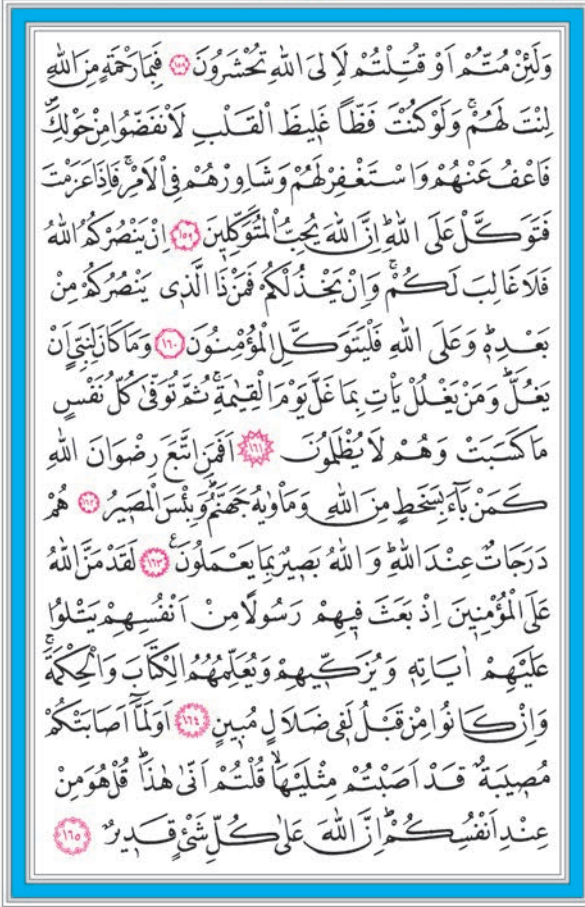 وَلَئِنْ مُتُّمْ اَوْ قُتِلْتُمْ لَاِلَى اللّٰهِ تُحْشَرُونَ ﴿١٥٨﴾ فَبِمَا رَحْمَةٍ مِنَ اللّٰهِ
لِنْتَ لَهُمْۚ وَلَوْ كُنْتَ فَظًّا غَل۪يظَ الْقَلْبِ لَانْفَضُّوا مِنْ حَوْلِكَۖ
فَاعْفُ عَنْهُمْ وَاسْتَغْفِرْ لَهُمْ وَشَاوِرْهُمْ فِي الْاَمْرِۚ فَاِذَا عَزَمْتَ
فَتَوَكَّلْ عَلَى اللّٰهِۜ اِنَّ اللّٰهَ يُحِبُّ الْمُتَوَكِّل۪ينَ ﴿١٥٩﴾ اِنْ يَنْصُرْكُمُ اللّٰهُ
فَلَا غَالِبَ لَكُمْۚ وَاِنْ يَخْذُلْكُمْ فَمَنْ ذَا الَّذ۪ي يَنْصُرُكُمْ مِنْ
بَعْدِه۪ۜ وَعَلَى اللّٰهِ فَلْيَتَوَكَّلِ الْمُؤْمِنُونَ ﴿١٦٠﴾ وَمَا كَانَ لِنَبِيٍّ اَنْ
يَغُلَّۜ وَمَنْ يَغْلُلْ يَأْتِ بِمَا غَلَّ يَوْمَ الْقِيٰمَةِۚ ثُمَّ تُوَفّٰى كُلُّ نَفْسٍ
مَا كَسَبَتْ وَهُمْ لَا يُظْلَمُونَ ﴿١٦١﴾ اَفَمَنِ اتَّبَعَ رِضْوَانَ اللّٰهِ
كَمَنْ بَٓاءَ بِسَخَطٍ مِنَ اللّٰهِ وَمَأْوٰيهُ جَهَنَّمُۜ وَبِئْسَ الْمَص۪يرُ ﴿١٦٢﴾ هُمْ
دَرَجَاتٌ عِنْدَ اللّٰهِۜ وَاللّٰهُ بَص۪يرٌ بِمَا يَعْمَلُونَ ﴿١٦٣﴾ لَقَدْ مَنَّ اللّٰهُ
عَلَى الْمُؤْمِن۪ينَ اِذْ بَعَثَ ف۪يهِمْ رَسُولًا مِنْ اَنْفُسِهِمْ يَتْلُوا
عَلَيْهِمْ اٰيَاتِه۪ وَيُزَكّ۪يهِمْ وَيُعَلِّمُهُمُ الْكِتَابَ وَالْحِكْمَةَۚ
وَاِنْ كَانُوا مِنْ قَبْلُ لَف۪ي ضَلَالٍ مُب۪ينٍ ﴿١٦٤﴾ اَوَلَمَّٓا اَصَابَتْكُمْ
مُص۪يبَةٌ قَدْ اَصَبْتُمْ مِثْلَيْهَاۙ قُلْتُمْ اَنّٰى هٰذَاۜ قُلْ هُوَ مِنْ
عِنْدِ اَنْفُسِكُمْۜ اِنَّ اللّٰهَ عَلٰى كُلِّ شَيْءٍ قَد۪يرٌ ﴿١٦٥﴾